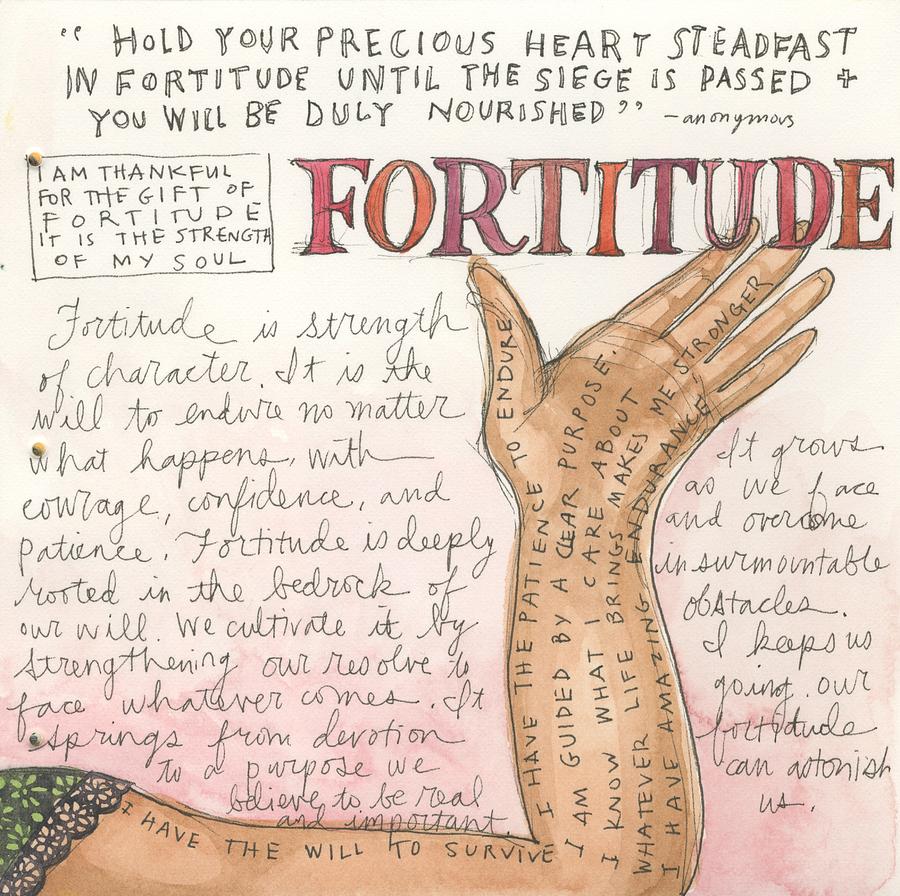 “ HOLD YOUR PRECIOUS HEART STEADFAST
IN FORTITUDE UNTIL THE SIEGE IS PASSED +
YOU WILL BE DULY NOURISHED” -anonymous
I AM THANKFUL
FOR THE GIFT OF
FORTITUDE
IT IS THE STRENGTH
OF MY SOUL
FORTITUDE
Fortitude is strength
of character. It is the
will to endure no matter
what happens, with
courage, confidence, and
patience. Fortitude is deeply
rooted in the bedrock of
our will. We cultivate it by
strengthening our resolve to
face whatever comes. It
springs from devotion
to a purpose we
believe to be real
and important.
I HAVE THE WILL TO SURVIVE
I HAVE THE PATIENCE TO ENDURE
I AM GUIDED BY A CLEAR PURPOSE.
I KNOW WHAT I CARE ABOUT
WHATEVER LIFE BRINGS MAKES ME STRONGER
I HAVE AMAZING ENDURANCE,
It grows
as we face
and overcome
insurmountable
obstacles.
I keeps us
going. our
fortitude
can astonish
us.